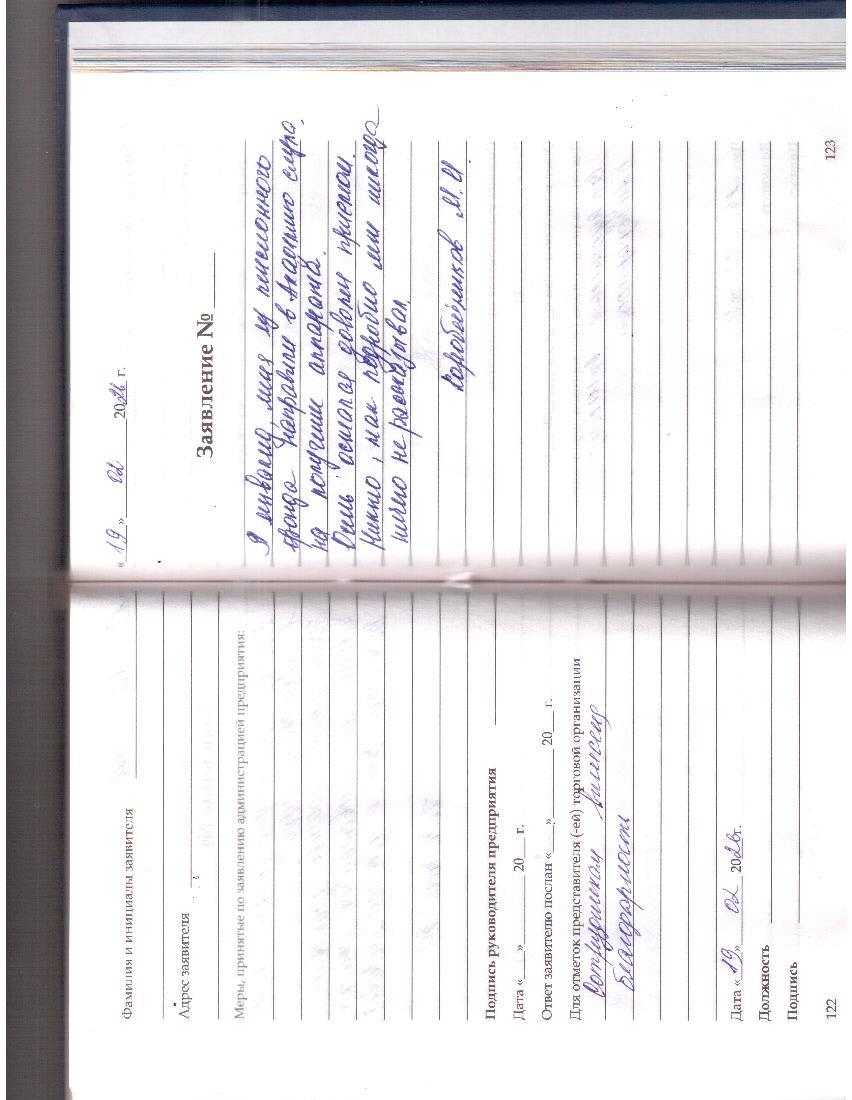 Фамилия и инициалы заявителя
Адрес заявителя
Меры, принятые по заявлению администрацией предприятия:
Подпись руководителя предприятия
Дата «___» ______ 20___ г.
Ответ заявителю послан «___» ______ 20___ г.
Для отметок представителя (-ей) торговой организации
Сотрудникам вынесена
благодарность
Дата «19» 02 2026г.
Должность
Подпись
122
«19» 02 2026 г.
Заявление № ____
Я инвалид, меня из пенсионного
фонда направили в Академию слуха,
на получение аппарата.
Очень остался доволен приемом.
Никто, так подробно мне никогда
ничего не рассказывал.
Коробейников М.И.
123